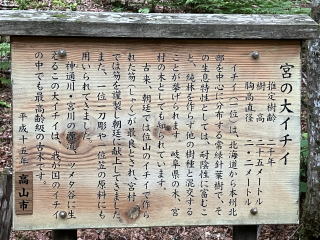 宮の大イチイ
推定樹齢 二千年
樹高 二十五メートル
胸高直径 二・二メートル
イチイ(一位)は、北海道から本州北
部を中心に分布する常緑針葉樹で、そ
の生息特性としては、耐陰性に富むこ
と、純林を作らず他の樹種と混交する
ことが挙げられます。岐阜県の木、宮
村の木としても知られています。
古来、朝廷では位山のイチイで作ら
れた笏(しゃく)が最良とされ、宮村
では笏を謹製し朝廷に献上してきました。
また、一位一刀彫や一位笠の原料にも
用いられてきました。
神通川・宮川の源流、ツメタ谷に生
えるこの大イチイは、我が国のイチイ
の中でも最高齢級の古木です。
平成十五年 高山市